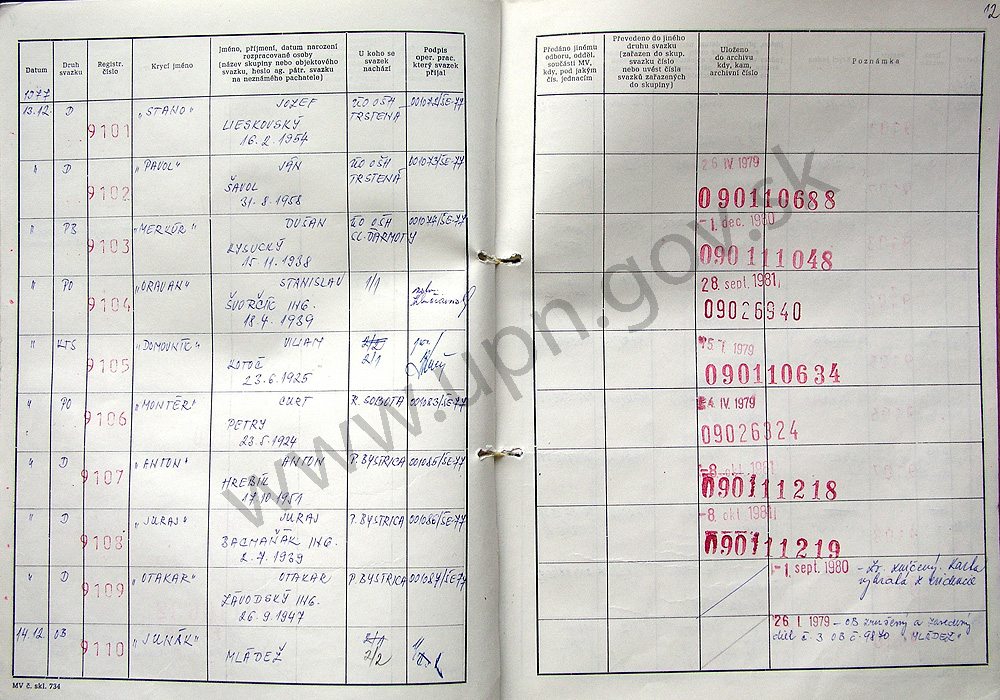 12
Datum
Druh svazku
Registr. číslo
Krycí jméno
Jméno, příjmení, datum narození
rozpracované osoby
(název skupiny nebo objektového
svazku, heslo ag. pátr. svazku
na neznámého pachatele)
U koho se
svazek
nachází
Podpis
oper. prac.
který svazek
přijal
Předáno jinému
odboru, odděl.
součásti MV,
kdy, pod jakým
čís. jednacím
Převedeno do jiného
druhu svazku
(zařazen do skup.
svazku číslo
nebo uvést čísla
svazků zařazených
do skupiny)
Uloženo
do archivu
kdy, kam,
archivní číslo
Poznámka
1977
13.12. D 9101 "STANO" JOZEF
LIESKOVSKÝ
16.2.1954
TRSTENÁ
" D 9102 "PAVOL" JÁN
ŠAVOL
31.8.1958
TRSTENÁ
26 IV 1979
090110688
" 9103 "MERKÚR" DUŠAN
KYSUCKÝ
15.11.1938
-1. dec. 1980
090111048
" PO 9104 "ORAVAN" STANISLAV 1/1
ŠVORČÍC ING.
18.4.1939
28. sept. 1981
09026940
" KTS 9105 VILIAM 2/2
2/1
KOTOČ
23.6.1925
1979
090110634
" PO 9106 "MONTÉR" CURT R. SOBOTA 001083/ŠE-77
PETRY
23.5.1924
IV. 1979
09026324
" D 9107 "ANTON" ANTON P. BYSTRICA 001085/ŠE-77
HREBÍK
17.10.1951
-8. okt. 1981
090111218
" D 9108 "JURAJ" JURAJ P. BYSTRICA 001086/ŠE-77
BACMAŇÁK ING.
2.7.1939
-8. okt. 1981
090111219
" D 9109 "OTAKAR" OTAKAR P. BYSTRICA
ZÁVODSKÝ ING.
26.9.1947
-1. sept. 1980
14.12. OB 9110 "JUNÁK" 2/1
MLÁDEŽ 2/2
26. I. 1979 - OB zrušený a
diel č. 3 OB č. 9870 "MLÁDEŽ"
MV č. skl. 734
www.upn.gov.sk